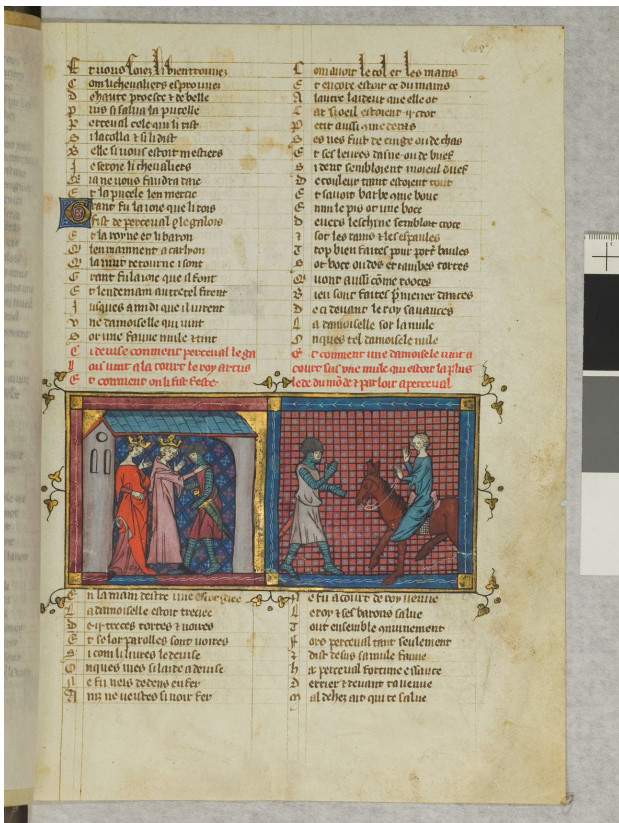 E t vous soiez li bien trouvez
C om li chevaliers esprouvez
D e haute proesce & de belle
P uis si salua la pucelle
P erceval cele qui li rist
S i lacolla & si li dist
B elle si vous estoit mestiers
J e seroie li chevaliers
Q ia ne vous faudra iaie
E t la pucele len mercie
Grant fu la ioie que li rois
fist de perceval le galois
E t la royne et li baron
Q len mainnent a carlyon
Q la nuit retourne i sont
G rant fu la ioie que il font
E t lendemain autretel firent
J usques a midi que il virent
V ne damoiselle qui vint
S or une fauve mule & tint
C i devise comment perceval le ga
l ois vint a la court le roy artus
E t comment on li fist feste
E n la main destre une escorgiee
L a damoiselle estoit treciee
D e ii treces tortes & noires
E t se lor parolles sont voires
S i com li livres le devise
O nques rien si laide a devise
N e fu neis dedens enfer
A inz ne veistes si noir fer
C om avoit le col et les mains
E t encore estoit ce du mains
A lautre laideur que elle ot
C ar si oeil estoient ii crot
P etit aussi comme de ras
S es nes fu de cinge ou de chas
E t ses levres dasne ou de buef
S i dent sembloient moieul duef
D e couleur tant estoient rout
E t savoit barbe come bouc
E nmi le pis ot une boce
D evers leschine sembloit croce
& sot les rains & les espaules
T rop bien faites pour porter baules
S ot boce ou dos et iambes tortes
Q vont aussi comme roortes
B ien sont faites pour mener dances
D e ci devant le roy savances
L a damoiselle sor la mule
O nques tel damoisele nule
E t comment une damoisele vint a
court sus une mule qui estoit la plus
lede du monde & parloit a perceval
N e fu a court de roy veue
L e roy & ses barons salue
T out ensemble comunement
F ors perceval tant seulement
& dist desus sa mule fauve
H a perceval fortune est chauve
D errier & devant chevelue
M al dehez ait qui te salue